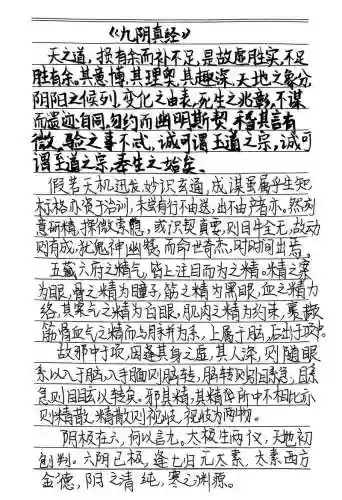 《九阴真经》
天之道，损有余而补不足，是故虚胜实，不足
胜有余。其意博，其理奥，其趣深，天地之象分，
阴阳之候列，变化之由表，死生之兆彰，不谋
而遗迹自同，勿约而幽明斯契，稽其言有
微，验之事不忒，诚可谓至道之宗，诚可
谓至道之宗，奉生之始矣。
假若天机迅发，妙识玄通，成谋虽属乎生知
标格亦资于治训，未尝有行不由送，出不由产者亦，然刻
意研精，探微索隐，或识契真要，则目牛全无，故动
则有成，犹鬼神幽赞，而命世奇杰，时时间出焉。
五藏六府之精气，皆上注目而为之精。精之窠
为眼，骨之精为瞳子，筋之精为黑眼，血之精力
络，其窠气之精为白眼，肌肉之精为约束，裹撷
筋骨血气之精而与脉并为系，上属于脑，后出于项中。
故邪中于项，因逢其身之虚，其人深，则随眼
系以入于脑，入于脑则脑转，脑转则引目系急，目系
急则目眩以转矣。邪其精，其精所中不相比亦
则精散，精散则视岐，视岐为两物。
阴极在六，何以言九。太极生两仪，天地初
创判。六阴已极，逢七归元太素，太素西方
金德，阳之清纯，寒之渊源。